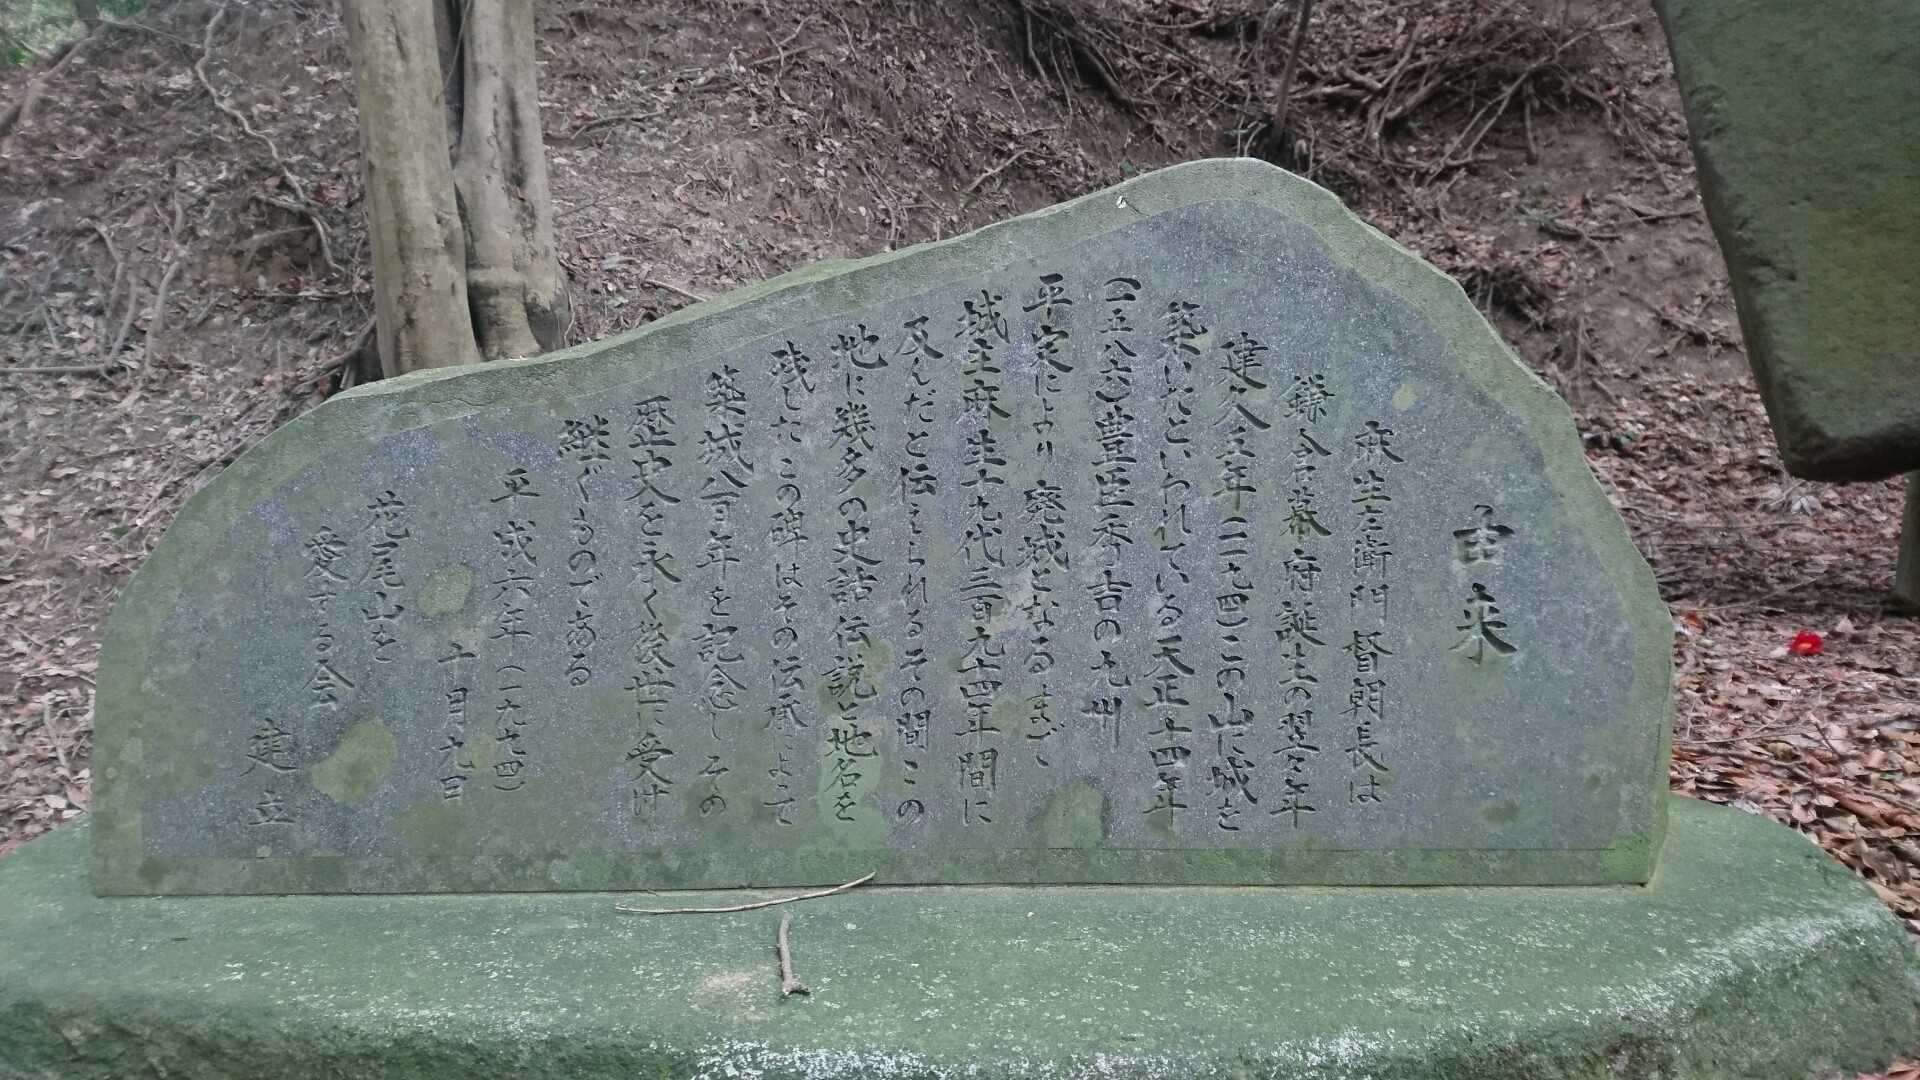 由来
麻生左衛門督朝長は
鎌倉幕府誕生の翌々年
建久五年(一一九四)この山に城を
築いたといわれている天正十四年
(一五八六)豊臣秀吉の九州
平定により廃城となるまで
城主麻生十九代三百九十四年間に
及んだと伝えられるその間この
地に幾多の史話伝説と地名を
残したこの碑はその伝承によって
築城八百年を記念しその
歴史を永く後世に受け
継ぐものである
平成六年(一九九四)
十月九日
花尾山を
愛する会
建立